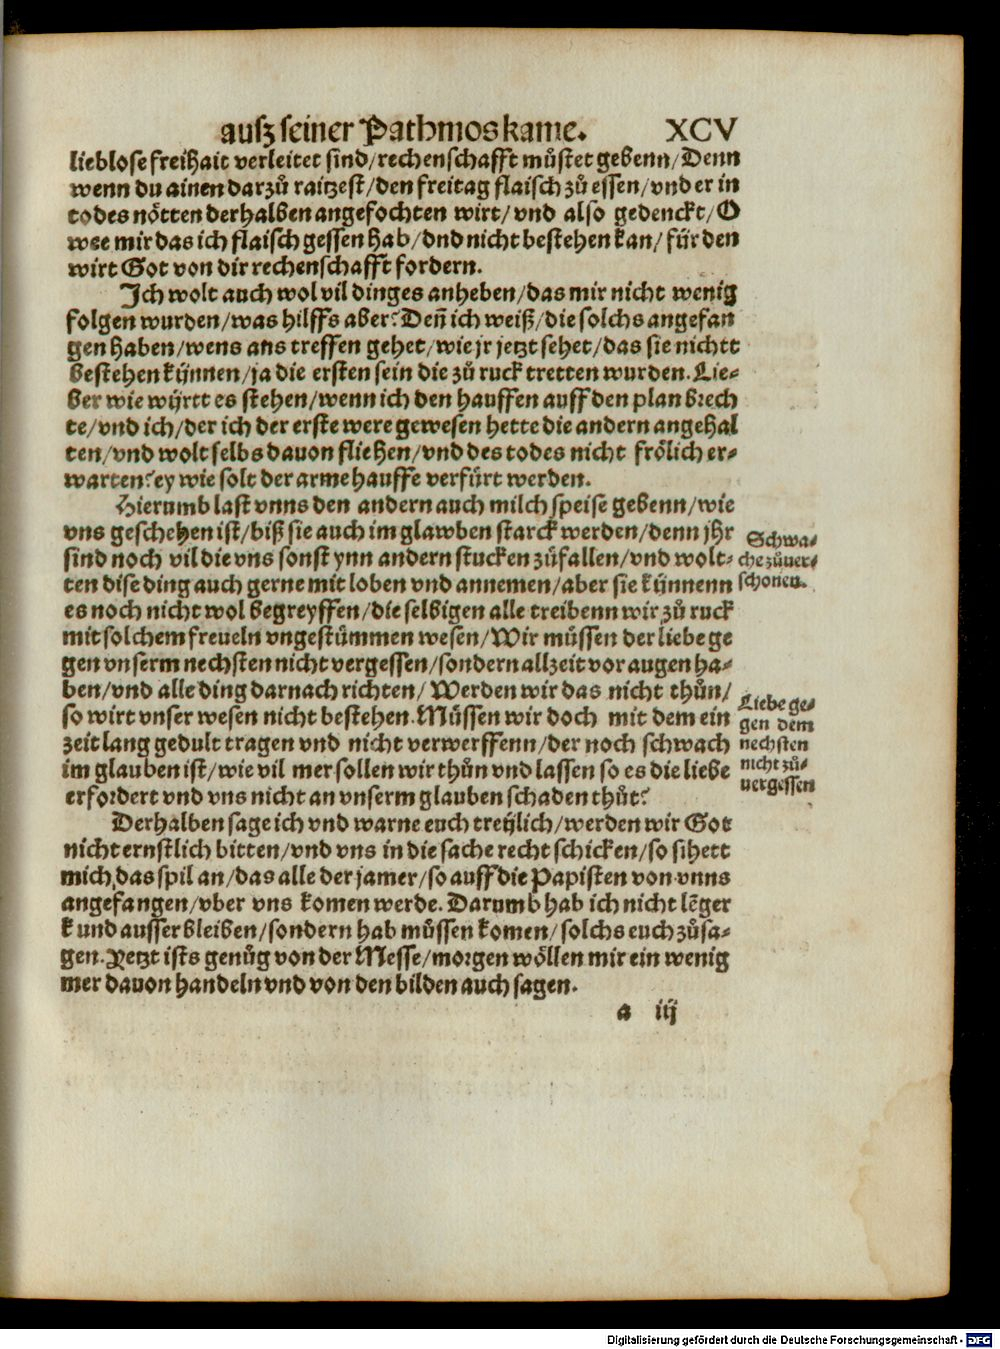 ausz seiner Pathmos kame. XCV
lieblose freihait verleitet sind/rechenschafft můstet gebenn/Denn
wenn du ainen darzů raitzest/den freitag flaisch zů essen/vnd er in
todes nötten derhalben angefochten wirt/vnd also gedenckt/O
wee mir das ich flaisch gessen hab/dnd nicht bestehen kan/für den
wirt Got von dir rechenschafft fordern.
Ich wolt auch wol vil dinges anheben/das mir nicht wenig
folgen wurden/was hilffs aber? Deñ ich weiß/die solchs angefan
gen haben/wens ans treffen gehet/wie jr jetzt sehet/das sie nichtt
bestehen kÿnnen/ja die ersten sein die zů ruck tretten wurden. Lie⸗
ber wie wÿrtt es stehen/wenn ich den hauffen auff den plan brech
te/vnd ich/der ich der erste were gewesen hette die andern angehal
ten/vnd wolt selbs dauon fliehen/vnd des todes nicht frölich er⸗
warten? ey wie solt der arme hauffe verfürt werden.
Hierumb last vnns den andern auch milch speise gebenn/wie
vns geschehen ist/biß sie auch im glawben starck werden/denn jhr
sind noch vil die vns sonst ynn andern stucken zůfallen/vnd wolt⸗
ten dise ding auch gerne mit loben vnd annemen/aber sie kÿnnenn
es noch nicht wol begreyffen/die selbigen alle treibenn wir zů ruck
mit solchem freueln vngestümmen wesen/Wir müssen der liebe ge
gen vnserm nechsten nicht vergessen/sondern allzeit vor augen ha⸗
ben/vnd alle ding darnach richten/Werden wir das nicht thůn/
so wirt vnser wesen nicht bestehen. Müssen wir doch mit dem ein
zeit lang gedult tragen vnd nicht verwerffenn/der noch schwach
im glauben ist/wie vil mer sollen wir thůn vnd lassen so es die liebe
erfordert vnd vns nicht an vnserm glauben schaden thůt?
Derhalben sage ich vnd warne euch treÿlich/werden wir Got
nicht ernstlich bitten/vnd vns in die sache recht schicken/so sihett
mich das spil an/das alle der jamer/so auff die Papisten von vnns
angefangen/vber vns komen werde. Darumb hab ich nicht lēger
kund ausser bleiben/sondern hab müssen komen/solchs euch zůsa⸗
gen. Yetzt ists genůg von der Messe/morgen wöllen mir ein wenig
mer dauon handeln vnd von den bilden auch sagen.
a iij
Schwa⸗
che zůuer⸗
schonen.
Liebe ge⸗
gen dem
nechsten
nicht zů⸗
uergessen
Digitalisierung gefördert durch die Deutsche Forschungsgemeinschaft - DFG